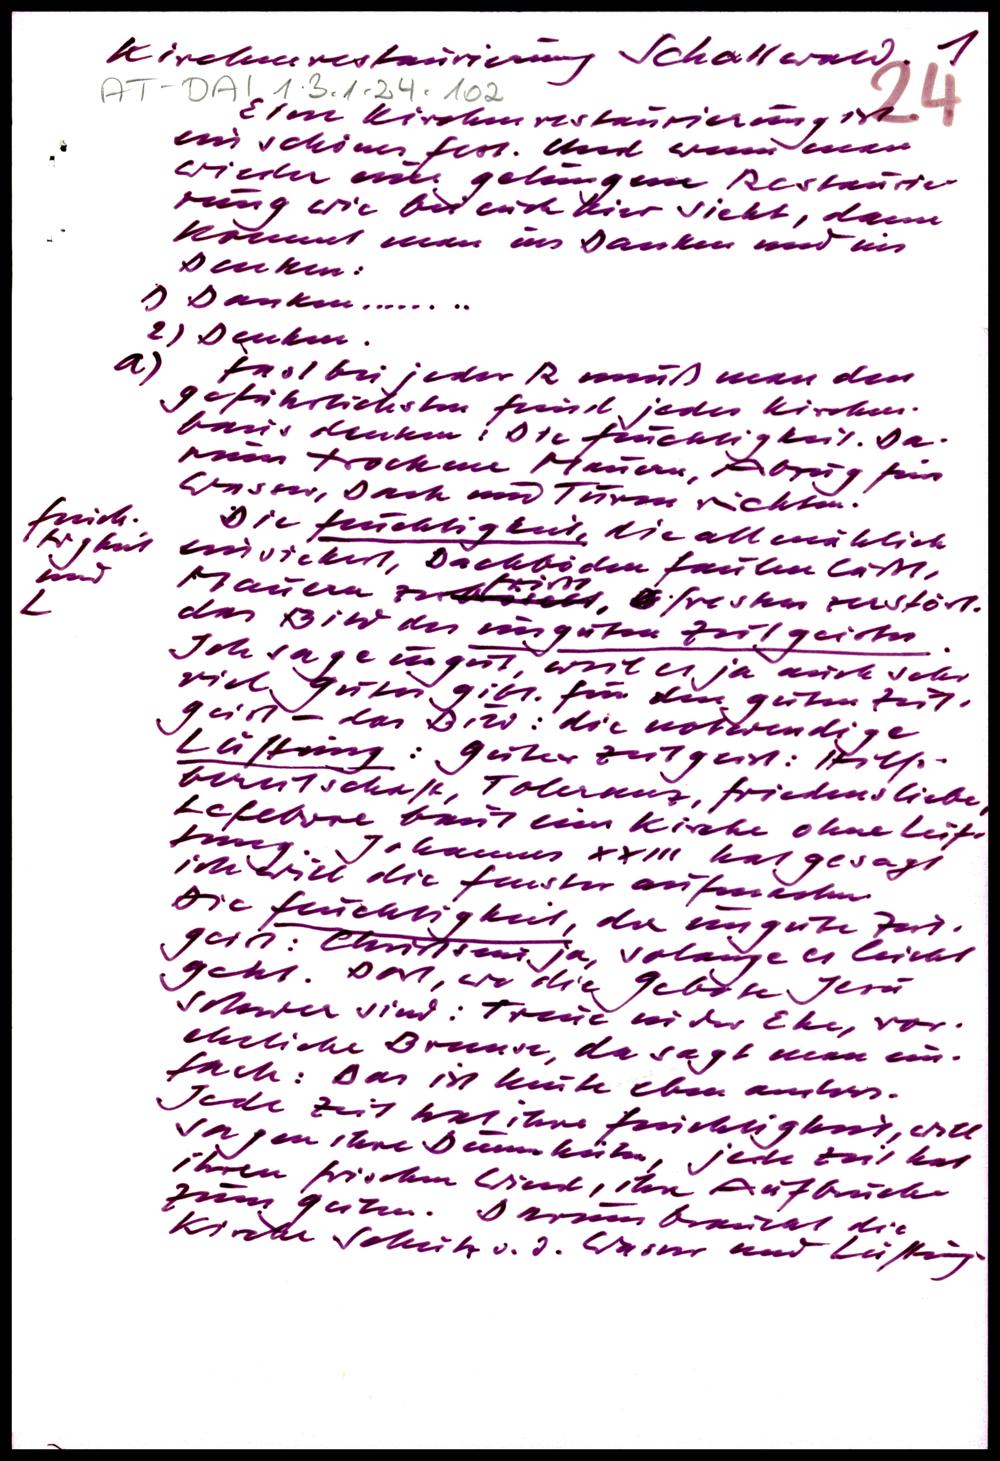 Kirchenrestaurierung Schallwald. 1
24
AT-DAI 1.3.1.24.102
Eine Kirchenrestaurierung ist
ein schönes Fest. Und wenn man
wieder eine gelungene Restaurie-
rung wie bei euch hier sieht, dann
kommt man ins Danken und ins
Denken:
1) Danken........
2) Denken.
a) Fast bei jeder R muß man den
gefährlichsten Feind jeder Kirchen-
basis denken: Die Feuchtigkeit. Da-
rum trockene Mauern, Abzug für
Wasser, Dach und Turm richten.
Feuch-
tigkeit
und
L
Die Feuchtigkeit, die allmählich
einsickert, Dachböden faulen läßt,
Mauern zerfrißt, Fresken zerstört.
das Bild des unguten Zeitgeistes.
Ich sage ungut, weil es ja auch sehr
viel Gutes gibt. Für den guten Zeit-
geist – das Bild: die notwendige
Lüftung: Guter Zeitgeist: Hilfs-
bereitschaft, Toleranz, Friedensliebe,
Lefebvre baut eine Kirche ohne Lüf-
tung. Johannes XXIII hat gesagt
ich will die Fenster aufmachen.
Die Feuchtigkeit, der ungute Zeit-
geist: Christsein ja, solange es leicht
geht. Dort, wo die Gebote Jesu
schwer sind: Treue in der Ehe, vor-
eheliche Bremse, da sagt man ein-
fach: Das ist heute eben anders.
Jede Zeit hat ihre Feuchtigkeit, will
sagen ihre Dummheiten, jede Zeit hat
ihren frischen Wind, ihre Aufbrüche
zum Guten. Darum braucht die
Kirche Schutz v. d. Wasser und Lüftung